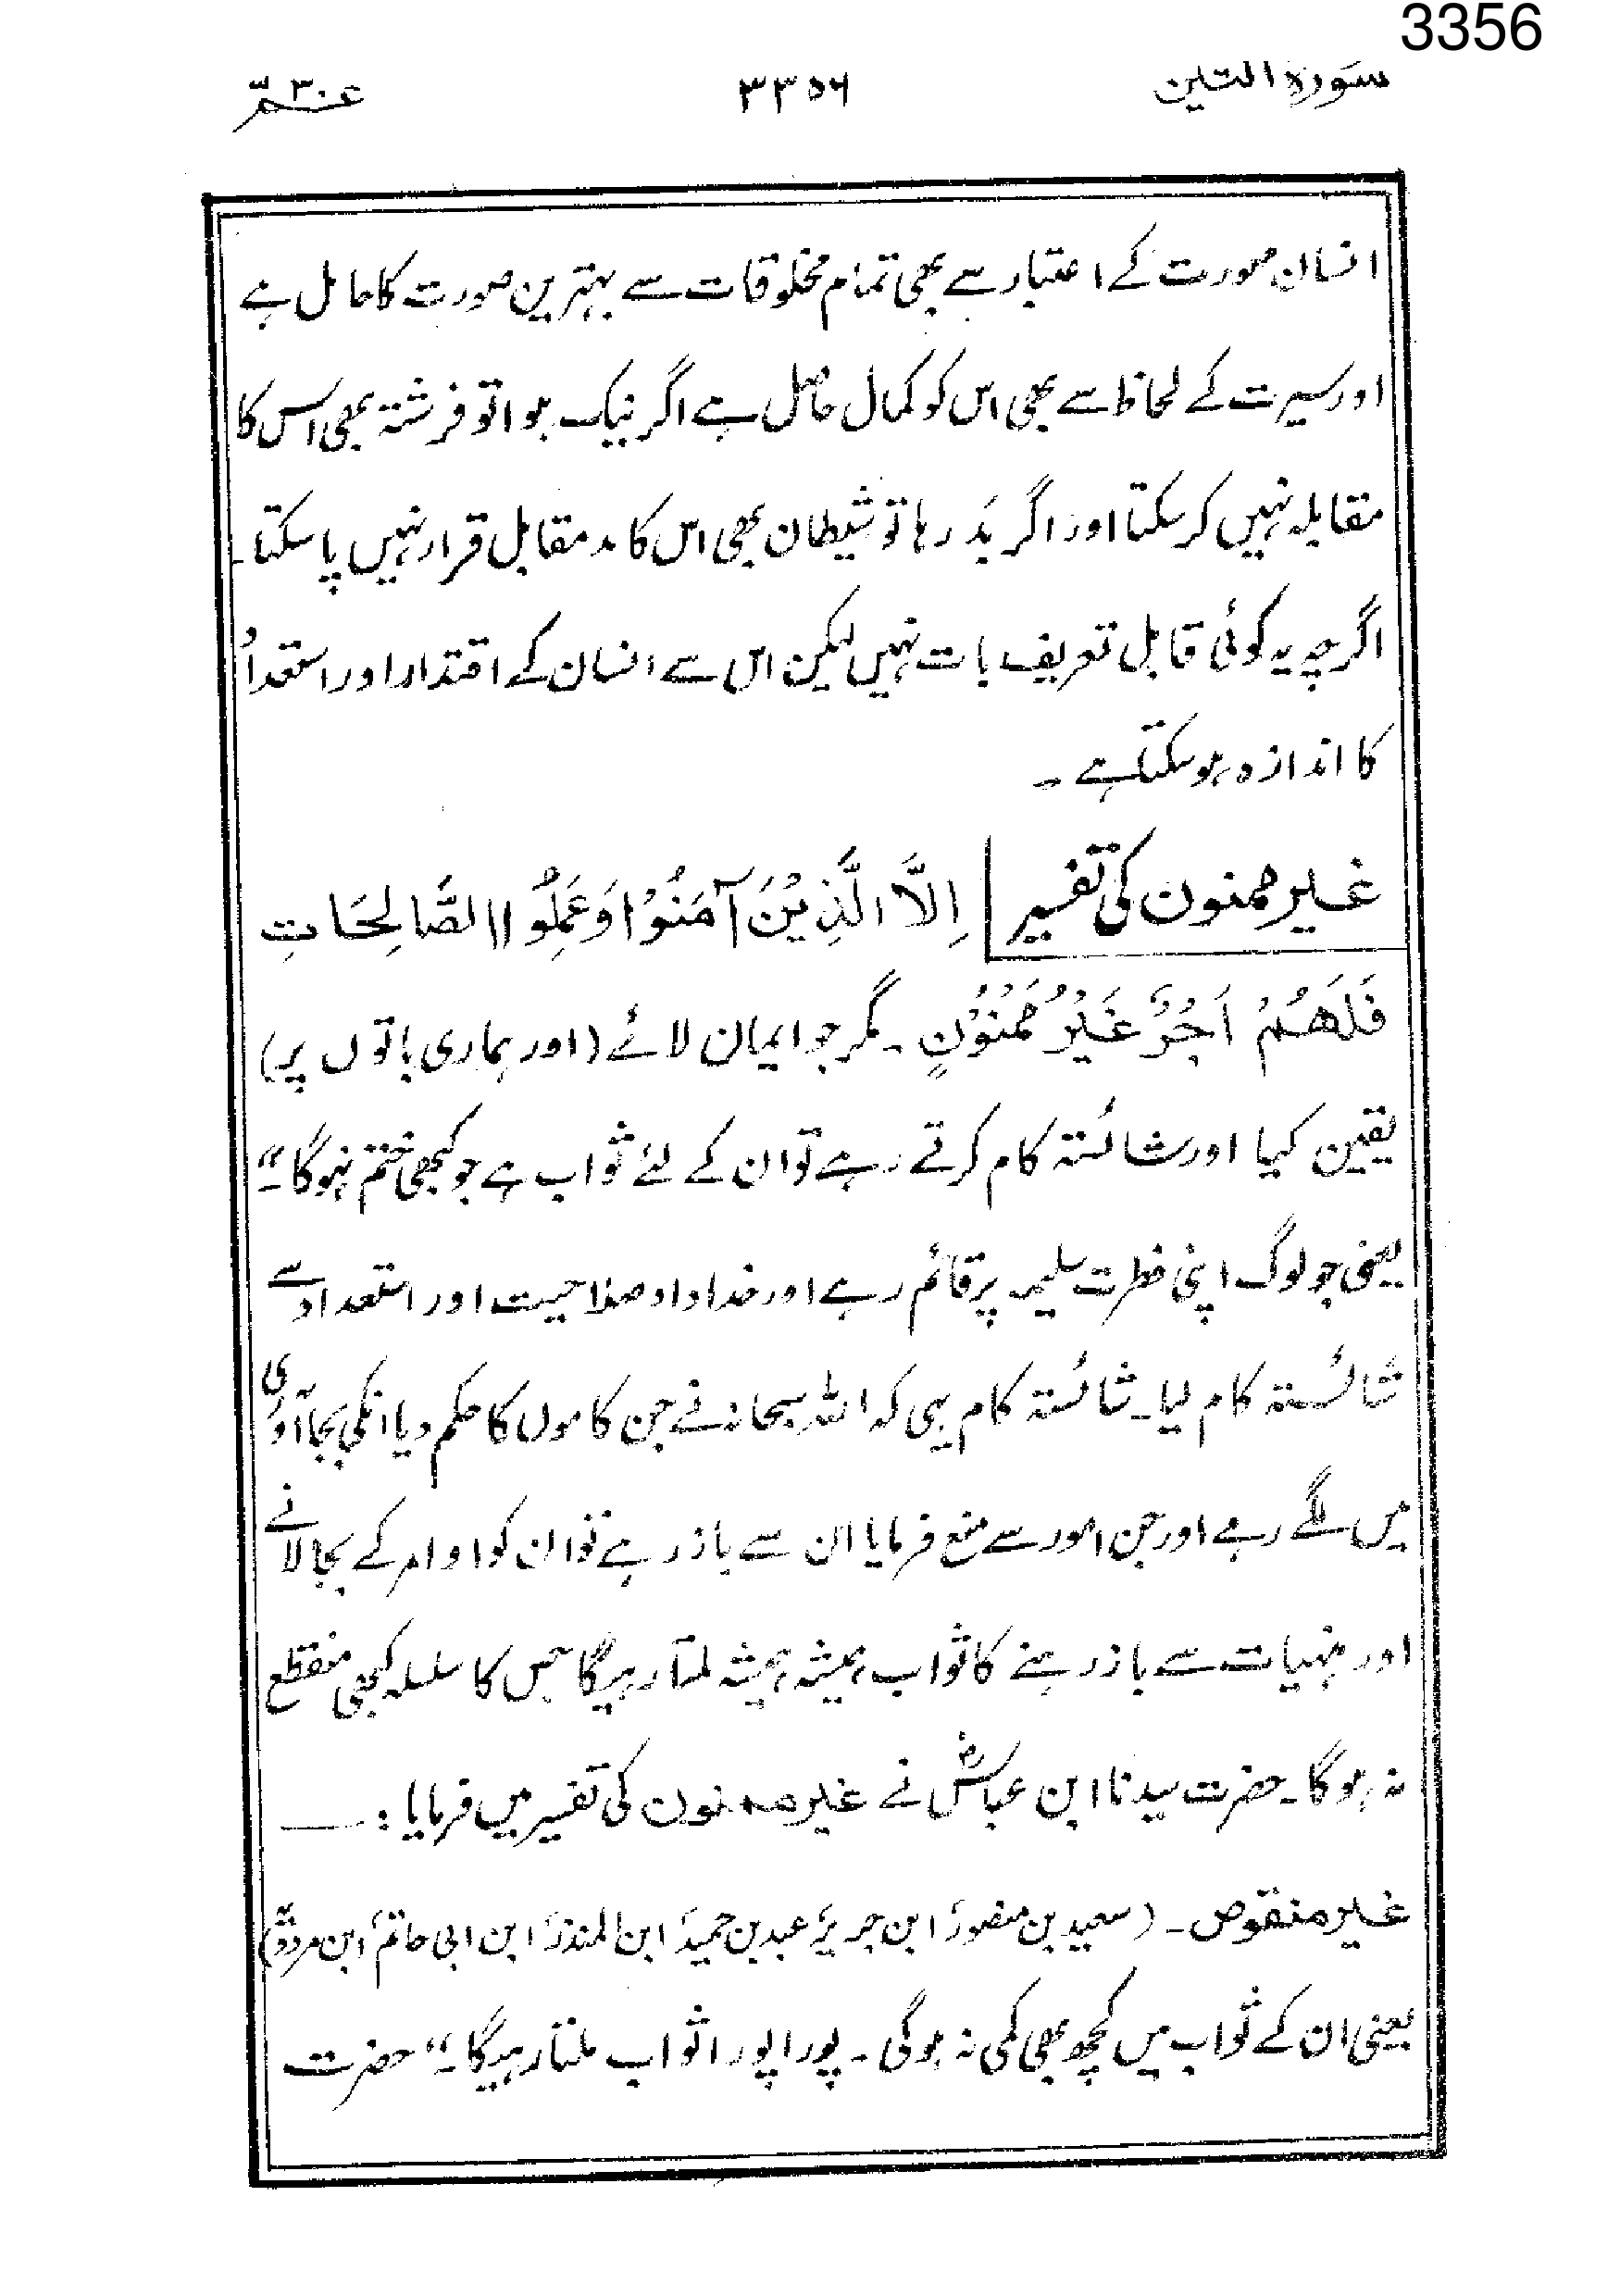 3356
سورہ التین ۳۳۵۶ عم ۳۰
انسان صورت کے اعتبار سے بھی تمام مخلوقات سے بہترین صورت کا حامل ہے
اور سیرت کے لحاظ سے بھی اس کو کمال حاصل ہے اگر نیک ہوا تو فرشتہ بھی اس کا
مقابلہ نہیں کر سکتا اور اگر بَد رہا تو شیطان بھی اس کا مد مقابل قرار نہیں پا سکتا۔
اگرچہ یہ کوئی قابل تعریف بات نہیں لیکن اس سے انسان کے اقتدار اور استعداد
کا اندازہ ہو سکتا ہے ۔
غیر ممنون کی تفسیر اِلَّا الَّذِیْنَ آمَنُوْا وَعَمِلُوا الصَّالِحَاتِ
فَلَهُمْ اَجْرٌ غَیْرُ مَمْنُوْنٍ ۔ مگر جو ایمان لائے (اور ہماری باتوں پر)
یقین کیا اور شائستہ کام کرتے رہے تو ان کے لئے ثواب ہے جو کبھی ختم نہوگا۔"
یعنی جو لوگ اپنی فطرت سلیمہ پر قائم رہے اور خداداد صلاحیت اور استعداد سے
شائستہ کام لیا۔ شائستہ کام یہی کہ اللہ سبحانہ نے جن کاموں کا حکم دیا انکی بجا آوری
میں لگے رہے اور جن امور سے منع فرمایا ان سے باز رہے تو ان کو اوامر کے بجا لانے
اور منہیات سے باز رہنے کا ثواب ہمیشہ ہمیشہ ملتا رہیگا جس کا سلسلہ کبھی منقطع
نہ ہوگا۔ حضرت سیدنا ابن عباسؓ نے غیر ممنون کی تفسیر میں فرمایا :ـــــ
غیر منقوص ۔ (سعید بن منصورؒ ابن جریرؒ عبد بن حمیدؒ ابن المنذرؒ ابن ابی حاتمؒ ابن مردویہؒ)
یعنی ان کے ثواب میں کچھ بھی کمی نہ ہوگی ۔ پورا پورا ثواب ملتا رہیگا۔" حضرت